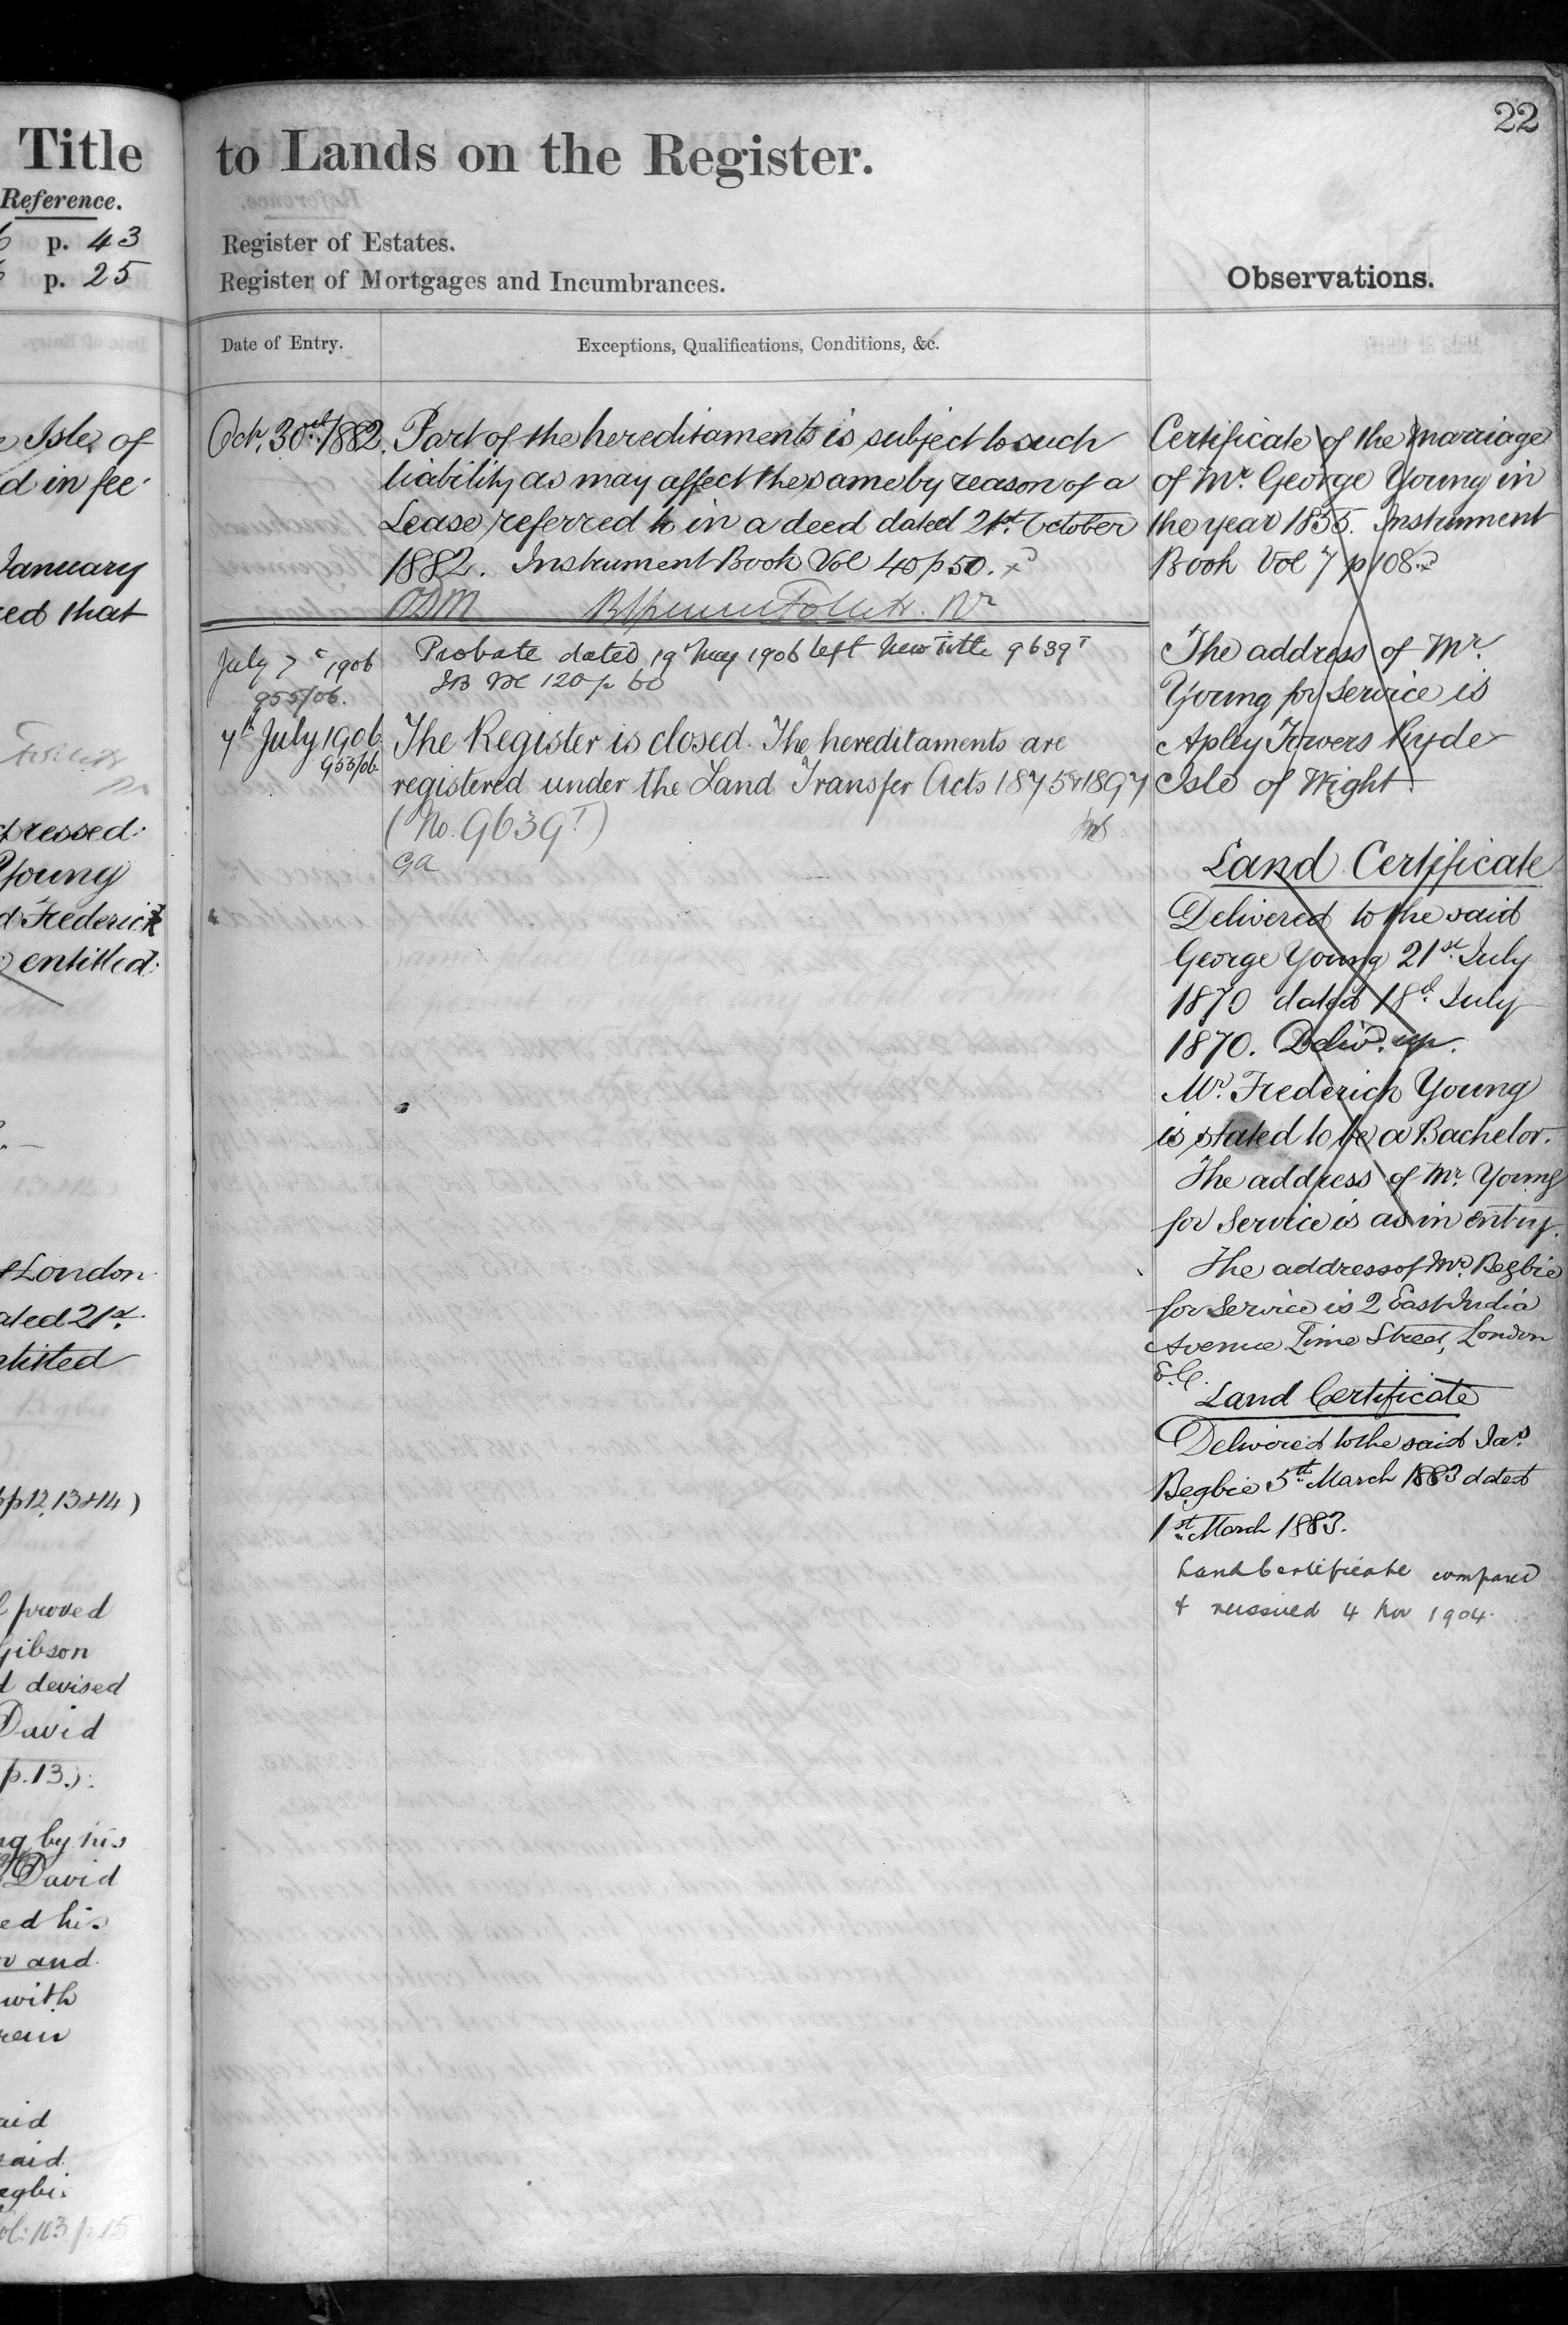 22
Title
Reference.
p. 43
p. 25
e Isle of
d in fee
January
ed that
pressed
Young
d Frederick
entitled
London
ated 21st
ntitled
pp 12, 13 & 14)
proved
Gibson
d devised
David
p. 13.)
ng by his
David
ed his
and
with
aid
said
p 15
to Lands on the Register.
Register of Estates.
Register of Mortgages and Incumbrances.
Date of Entry.
Exceptions, Qualifications, Conditions, &c.
Oct. 30th 1882. Part of the hereditaments is subject to such
liability as may affect the same by reason of a
Lease referred to in a deed dated 21st October
1882. Instrument Book Vol 40 p 50.
July 7th 1906 Probate dated 19 May 1906 left New Title 9639T
955/06. IB Vol 120 p 60
7th July 1906 The Register is closed. The hereditaments are
953/06 registered under the Land Transfer Acts 1875 & 1897
(No. 9639T)
Observations.
Certificate of the marriage
of Mr. George Young in
the year 1835. Instrument
Book Vol 7 p 108.
The address of Mr.
Young for service is
Apley Towers Ryde
Isle of Wight
Land Certificate
Delivered to the said
George Young 21st July
1870 dated 18th July
1870. Delivd. up.
Mr. Frederick Young
is stated to be a Bachelor.
The address of Mr. Young
for Service is as in entry.
The address of Mr. Begbie
for Service is 2 East India
Avenue Lime Street, London
E.C.
Land Certificate
Delivered to the said Jas.
Begbie 5th March 1883 dated
1st March 1883.
Land Certificate compared
& reissued 4 Nov 1904.